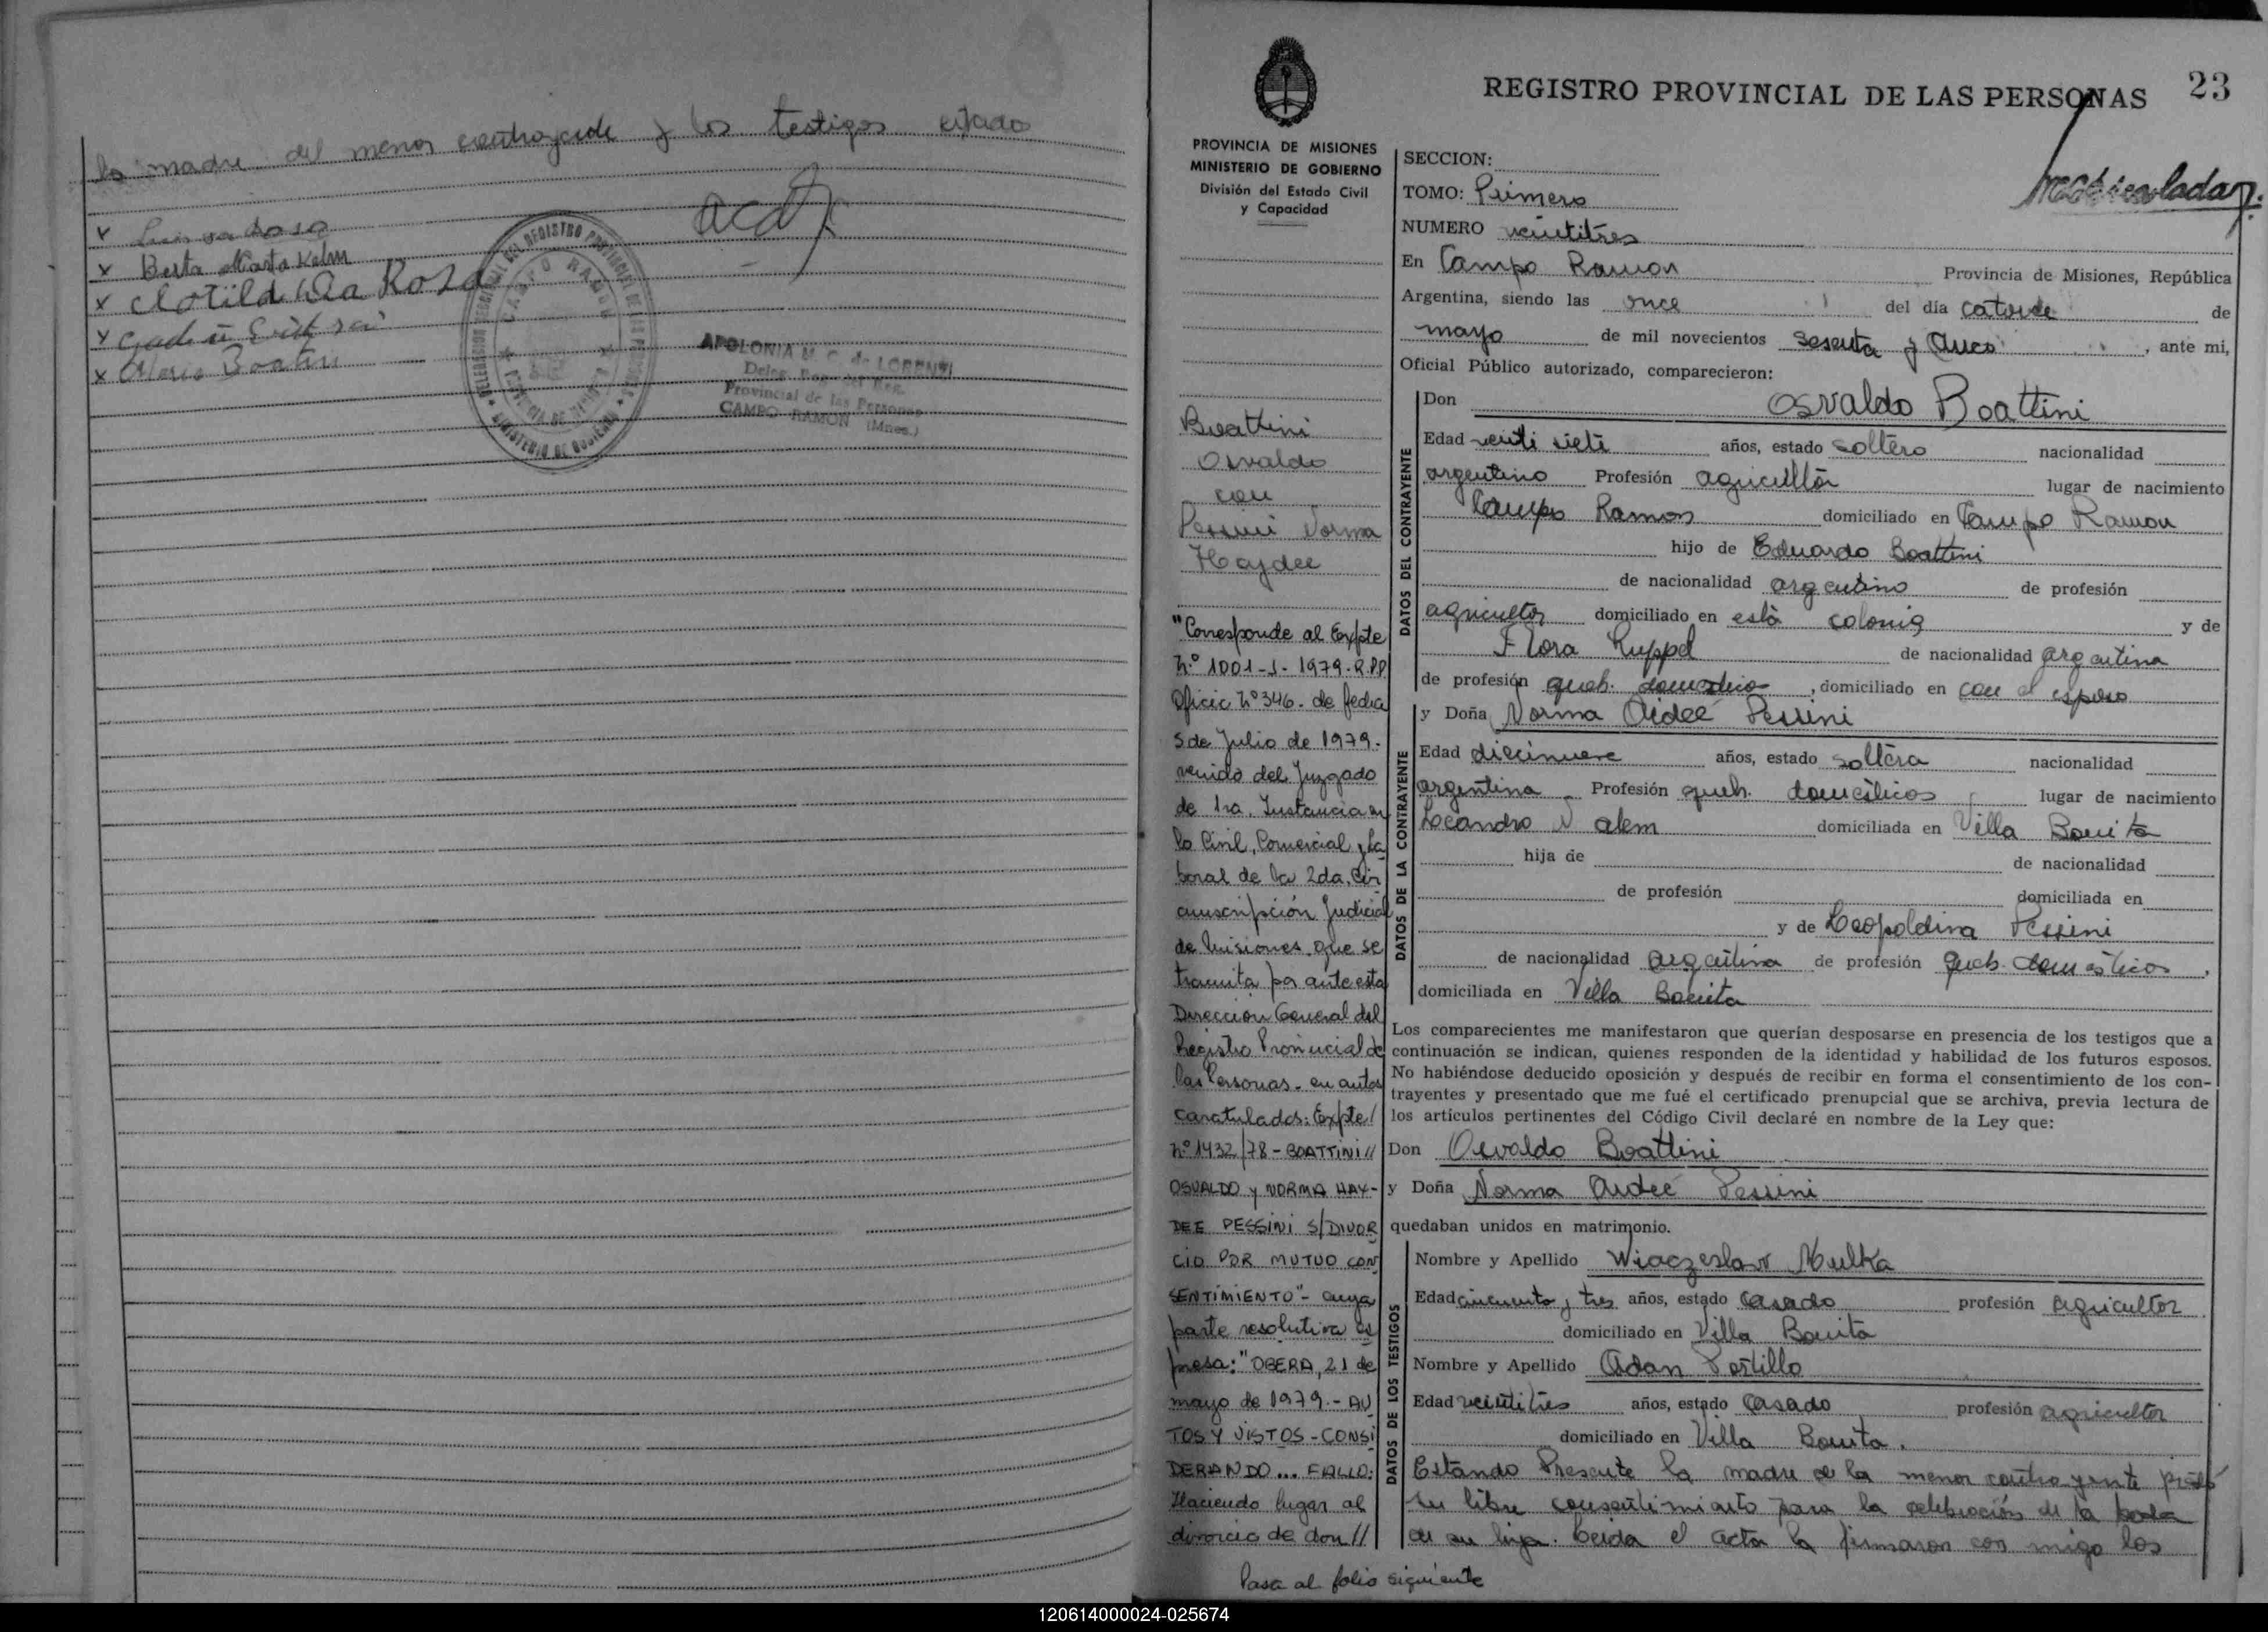 la madre del menor contrayente y los testigos citado
x Luis da Rosa
x Berta Marta Kelm
x Clotild Da Rosa
x
x Mario Boatini
DELEGACION REGIONAL DEL REGISTRO PROVINCIAL DE LAS PERSONAS
CAMPO RAMON
PROVINCIA DE MISIONES
MINISTERIO DE GOBIERNO
APOLONIA M. C. de LORENZI
Deleg. Reg. del Reg.
Provincial de las Personas
CAMPO RAMON (Mnes.)
REGISTRO PROVINCIAL DE LAS PERSONAS 23
PROVINCIA DE MISIONES
MINISTERIO DE GOBIERNO
División del Estado Civil
y Capacidad
Boattini
Osvaldo
con
Pessini Norma
Haydee
"Corresponde al Expte
N.º 1001-J-1979-R.P.P.
Oficio Nº 346. de fecha
5 de Julio de 1979.
venido del Juzgado
de 1ra. Instancia en
lo Civil, Comercial y La
boral de la 2da. Cir
cunscripción Judicial
de Misiones, que se
tramita por ante esta
Dirección General del
Registro Provincial de
las Personas. en autos
caratulados: Expte/
Nº 1432/78 - BOATTINI //
OSVALDO y NORMA HAY-
DEE PESSINI S/DIVOR
CIO POR MUTUO CON
SENTIMIENTO"- cuya
parte resolutiva ex
presa: "OBERA, 21 de
mayo de 1979.- AU
TOS Y VISTOS - CONSI
DERANDO... FALLO:
Haciendo lugar al
divorcio de don //
Pasa al folio siguiente
SECCION:
TOMO: Primero
NUMERO veintitres
En Campo Ramon Provincia de Misiones, República
Argentina, siendo las once del día catorce de
mayo de mil novecientos sesenta y cinco, ante mi,
Oficial Público autorizado, comparecieron:
DATOS DEL CONTRAYENTE
Don Osvaldo Boattini
Edad veinti siete años, estado soltero nacionalidad
argentino Profesión agricultor lugar de nacimiento
Campo Ramon domiciliado en Campo Ramon
hijo de Eduardo Boattini
de nacionalidad argentino de profesión
agricultor domiciliado en está colonia y de
Flora Ruppel de nacionalidad argentina
de profesión queh. domestico, domiciliado en con el esposo
DATOS DE LA CONTRAYENTE
y Doña Norma Aideé Pessini
Edad diecinueve años, estado soltera nacionalidad
argentina Profesión queh. domésticos lugar de nacimiento
Leandro N alem domiciliada en Villa Bonita
hija de de nacionalidad
de profesión domiciliada en
y de Leopoldina Pessini
de nacionalidad argentina de profesión queh. domésticos,
domiciliada en Villa Bonita
Los comparecientes me manifestaron que querían desposarse en presencia de los testigos que a
continuación se indican, quienes responden de la identidad y habilidad de los futuros esposos.
No habiéndose deducido oposición y después de recibir en forma el consentimiento de los con-
trayentes y presentado que me fué el certificado prenupcial que se archiva, previa lectura de
los artículos pertinentes del Código Civil declaré en nombre de la Ley que:
Don Osvaldo Boattini
y Doña Norma Aideé Pessini
quedaban unidos en matrimonio.
DATOS DE LOS TESTIGOS
Nombre y Apellido Wiaczeslaw Kulka
Edad cincuenta y tres años, estado casado profesión agricultor
domiciliado en Villa Bonita
Nombre y Apellido Adan Portillo
Edad veintitres años, estado casado profesión agricultor
domiciliado en Villa Bonita.
Estando Presente la madre de la menor contrayente prestó
su libre consentimiento para la celebración de la boda
de su hija. Leida el acta la firmaron con migo los
120614000024-025674